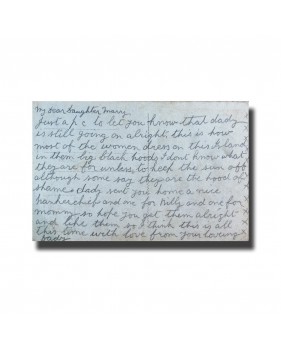 My Dear Daughter Mary
Just a p c to let you know that dady
is still going on alright this is how
most of the women dress on this Island
in them big black hoods I dont know what
they are for unless to keep the sun off
although some say they are the hood of
shame & dady sent you home a nice
hankerchief and one for Milly and one for
mommy so hope you get them alright
and like them so I think this is all
this time with love from your loving
Dady